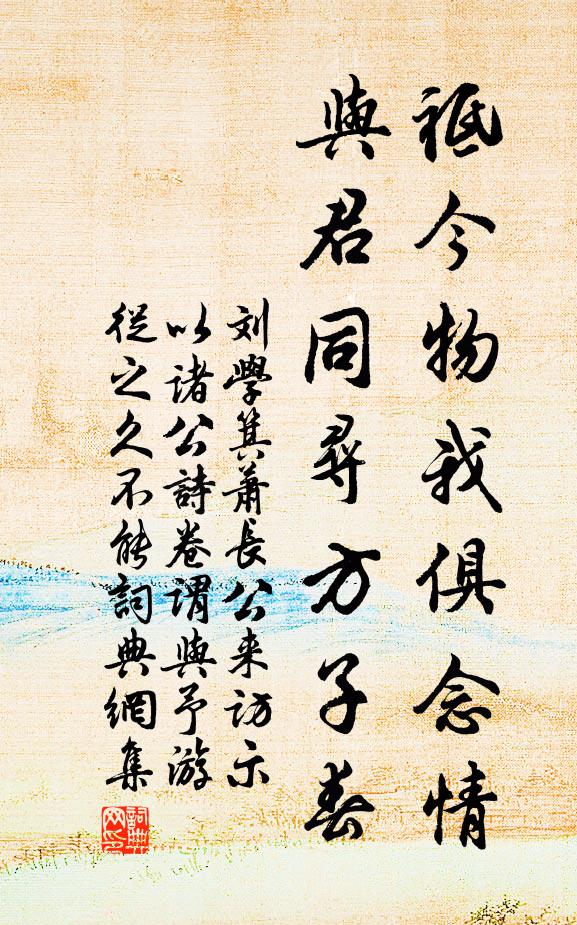 祗今物我俱念情
與君同尋方子春
刘學箕萧長公来访示
以诸公詩卷谓與予游
從之久不能詞典網集
詞典
网印